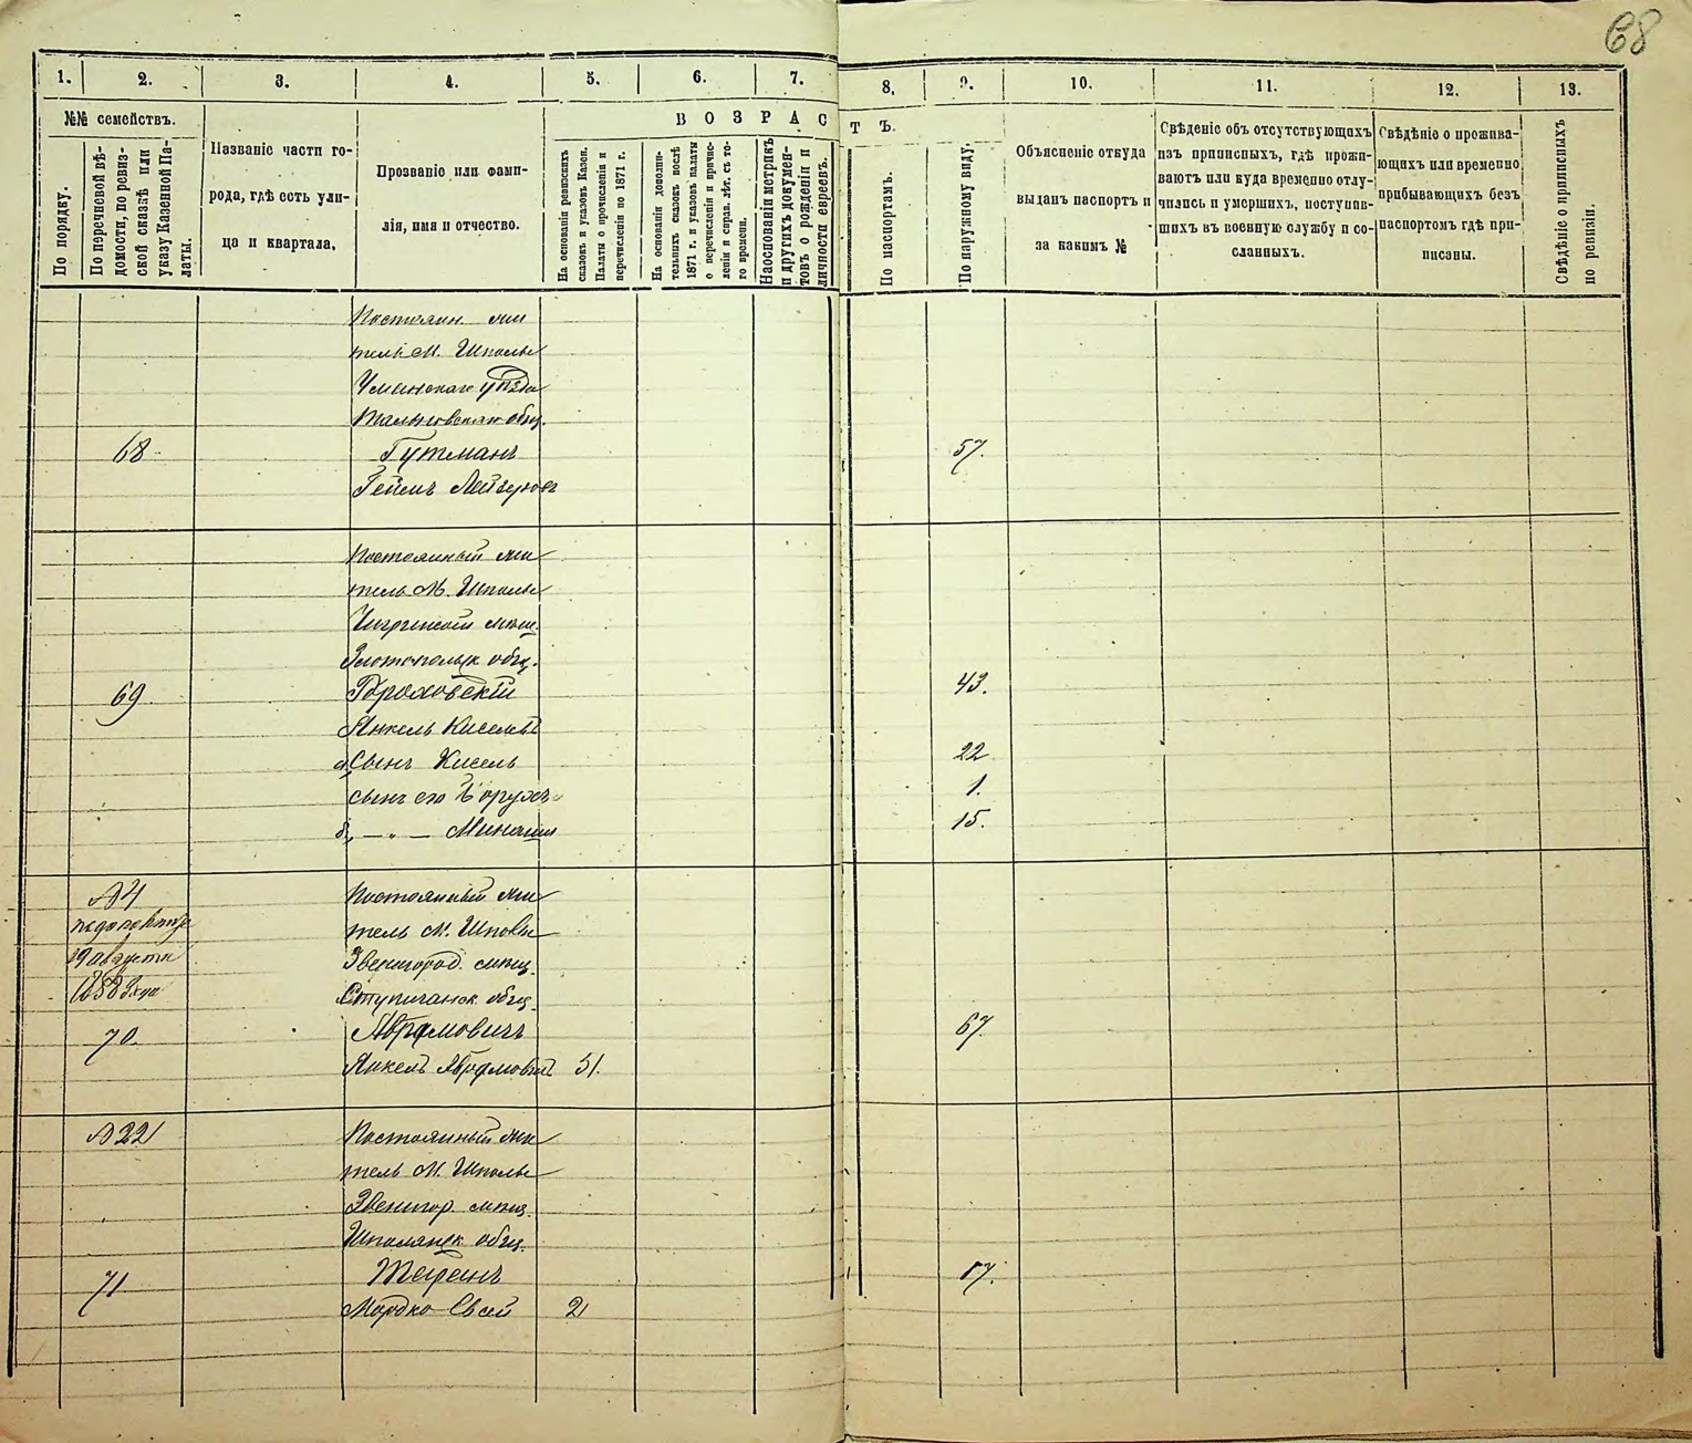 68
1. 2. 3. 4. 5. 6. 7. 8. 9. 10. 11. 12. 13.
№№ семействъ.
По порядку.
По перечневой вѣ-
домости, по ревиз-
ской сказкѣ или
указу Казенной Па-
латы.
Названіе части го-
рода, гдѣ есть ули-
ца и квартала.
Прозваніе или фами-
лія, имя и отчество.
ВОЗРАСТЪ.
На основаніи ревизскихъ
сказокъ и указовъ Казен.
Палаты о причисленіи и
перечисленіи по 1871 г.
На основаніи дополни-
тельныхъ сказокъ послѣ
1871 г. и указовъ палаты
о перечисленіи и причис-
леніи и справ. лѣт. съ то-
го времени.
Наоснованіи метрикъ
и другихъ докумен-
товъ о рожденіи и
личности евреевъ.
По паспортамъ.
По наружному виду.
Объясненіе откуда
выданъ паспортъ и
за какимъ №
Свѣденіе объ отсутствующихъ
изъ приписныхъ, гдѣ прожи-
ваютъ или куда временно отлу-
чились и умершихъ, поступив-
шихъ въ военную службу и со-
сланныхъ.
Свѣдѣніе о прожива-
ющихъ или временно
прибывающихъ безъ
паспортомъ гдѣ при-
писаны.
Свѣдѣніе о приписныхъ
по ревизіи.
Постоян. жи
тель М. Шполы
Уманскаго уѣзда
Тальновскаго общ.
68 Гутманъ 57.
Постоянный жи
тель М. Шполы
Чигринскій мѣщ.
Златопольск общ.
69 Гороховскій 43.
Янкель Киселевъ
а, Сынъ Кисель 22
сынъ его Борухъ 1.
б, — „ — Минашя 15.
№ 4 Постоянный жи
тель М. Шполы
19 августа Звенигород. мѣщ.
1883 года общ.
70 Аврамовичъ 67.
Янкель Аврамовъ 51.
№ 22 Постоянный жи
тель М. Шполы
Звенигор. мѣщ.
Шполянск общ.
71 17.
Мордко 2